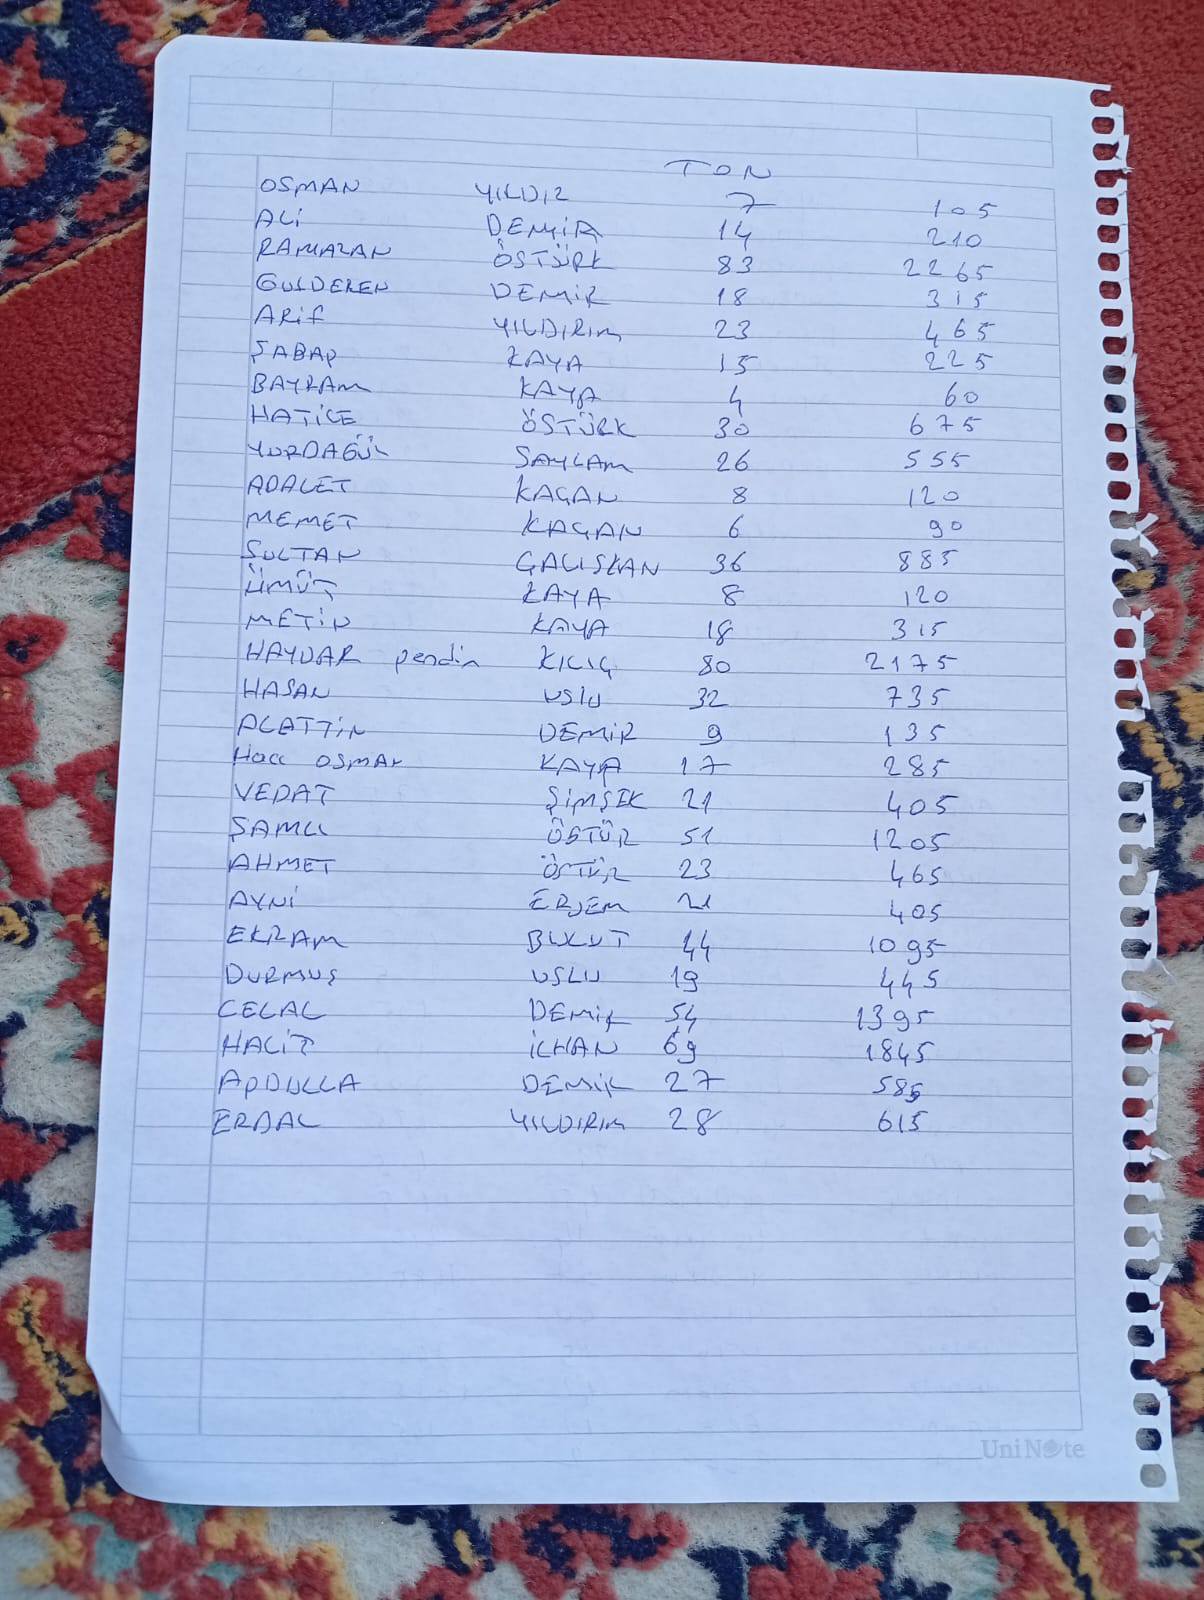 TON
OSMAN YILDIZ 7 105
ALİ DEMİR 14 210
RAMAZAN ÖSTÜRK 83 2265
GULDEREN DEMİR 18 315
ARİF YILDIRIM 23 465
ŞABAP KAYA 15 225
BAYRAM KAYA 4 60
HATİCE ÖSTÜRK 30 675
YURDAGÜL SAYLAM 26 555
ADALET KAÇAN 8 120
MEMET KAÇAN 6 90
SULTAN ÇALISKAN 36 885
ÜMÜT KAYA 8 120
METİN KAYA 18 315
HAYDAR pendin KILIÇ 80 2175
HASAN USLU 32 735
ALATTİN DEMİR 9 135
Hacı OSMAN KAYA 17 285
VEDAT ŞİMŞEK 21 405
ŞAMLI ÖSTÜR 51 1205
AHMET ÖSTÜR 23 465
AYNİ 21 405
EKRAM BULUT 44 1095
DURMUŞ USLU 19 445
CELAL DEMİR 54 1395
HALİT İLHAN 69 1845
APDULLA DEMİR 27 585
ERDAL YILDIRIM 28 615
UniNote